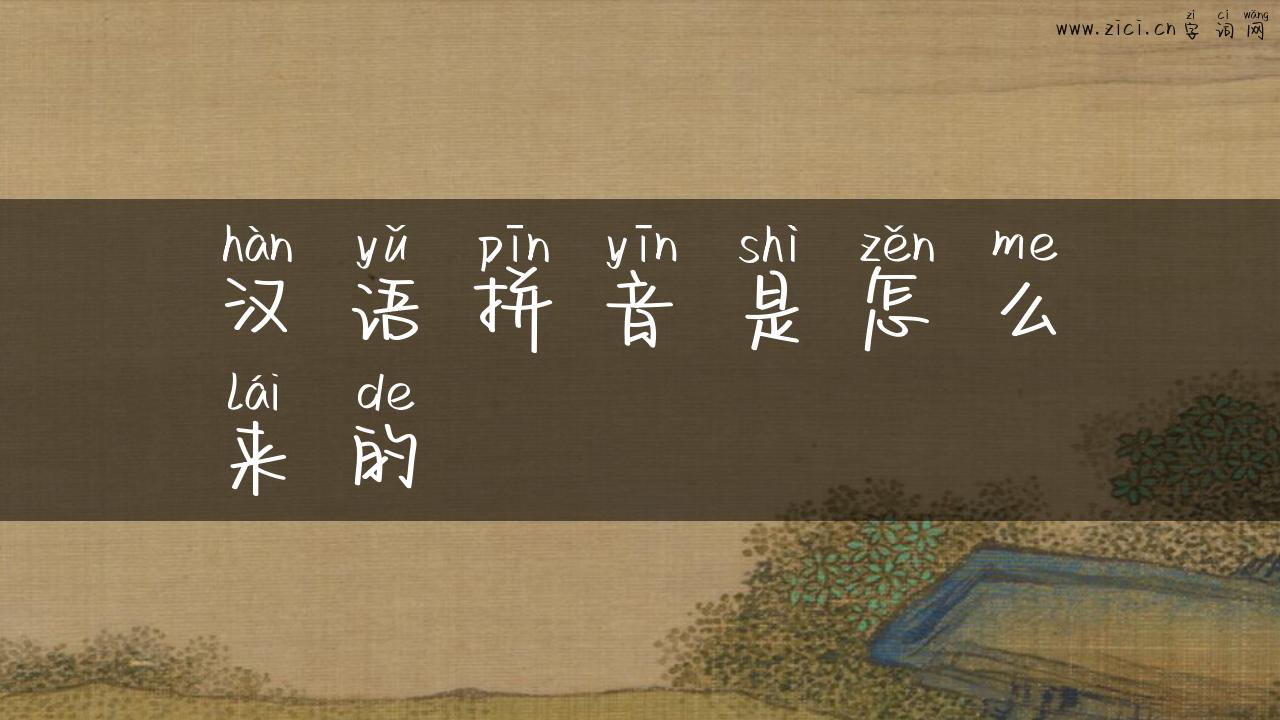 zì cí wǎng
www.zici.cn 字词网
hàn yǔ pīn yīn shì zěn me
汉语拼音是怎么
lái de
来的